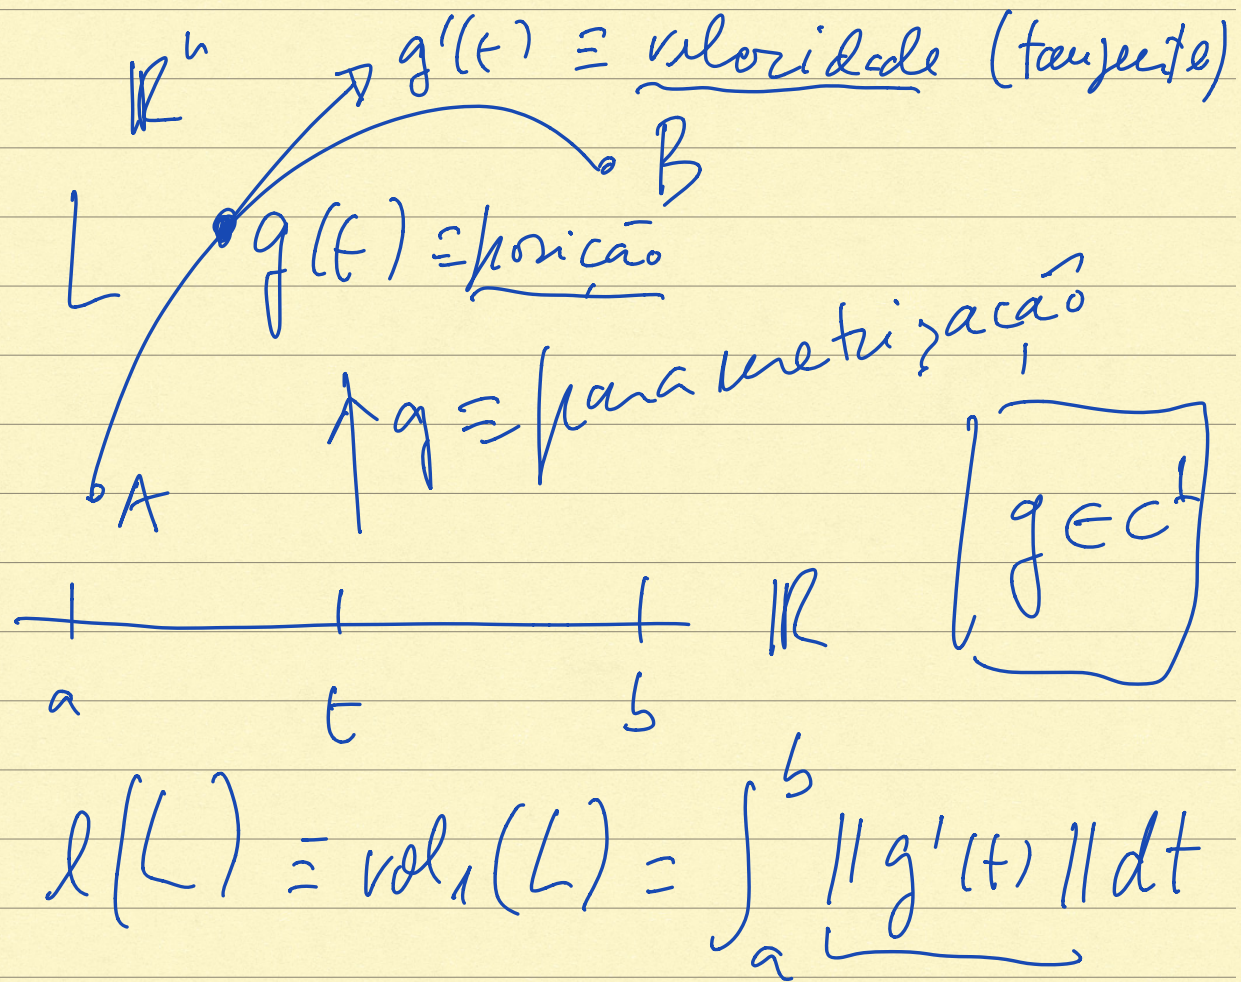 ℝⁿ
g'(t) ≡ velocidade (tangente)
B
L
g(t) ≡ posição
↑ g ≡ parametrização
A
g ∈ C¹
ℝ
a t b
l(L) ≡ vol₁(L) = ∫ₐᵇ ||g'(t)|| dt